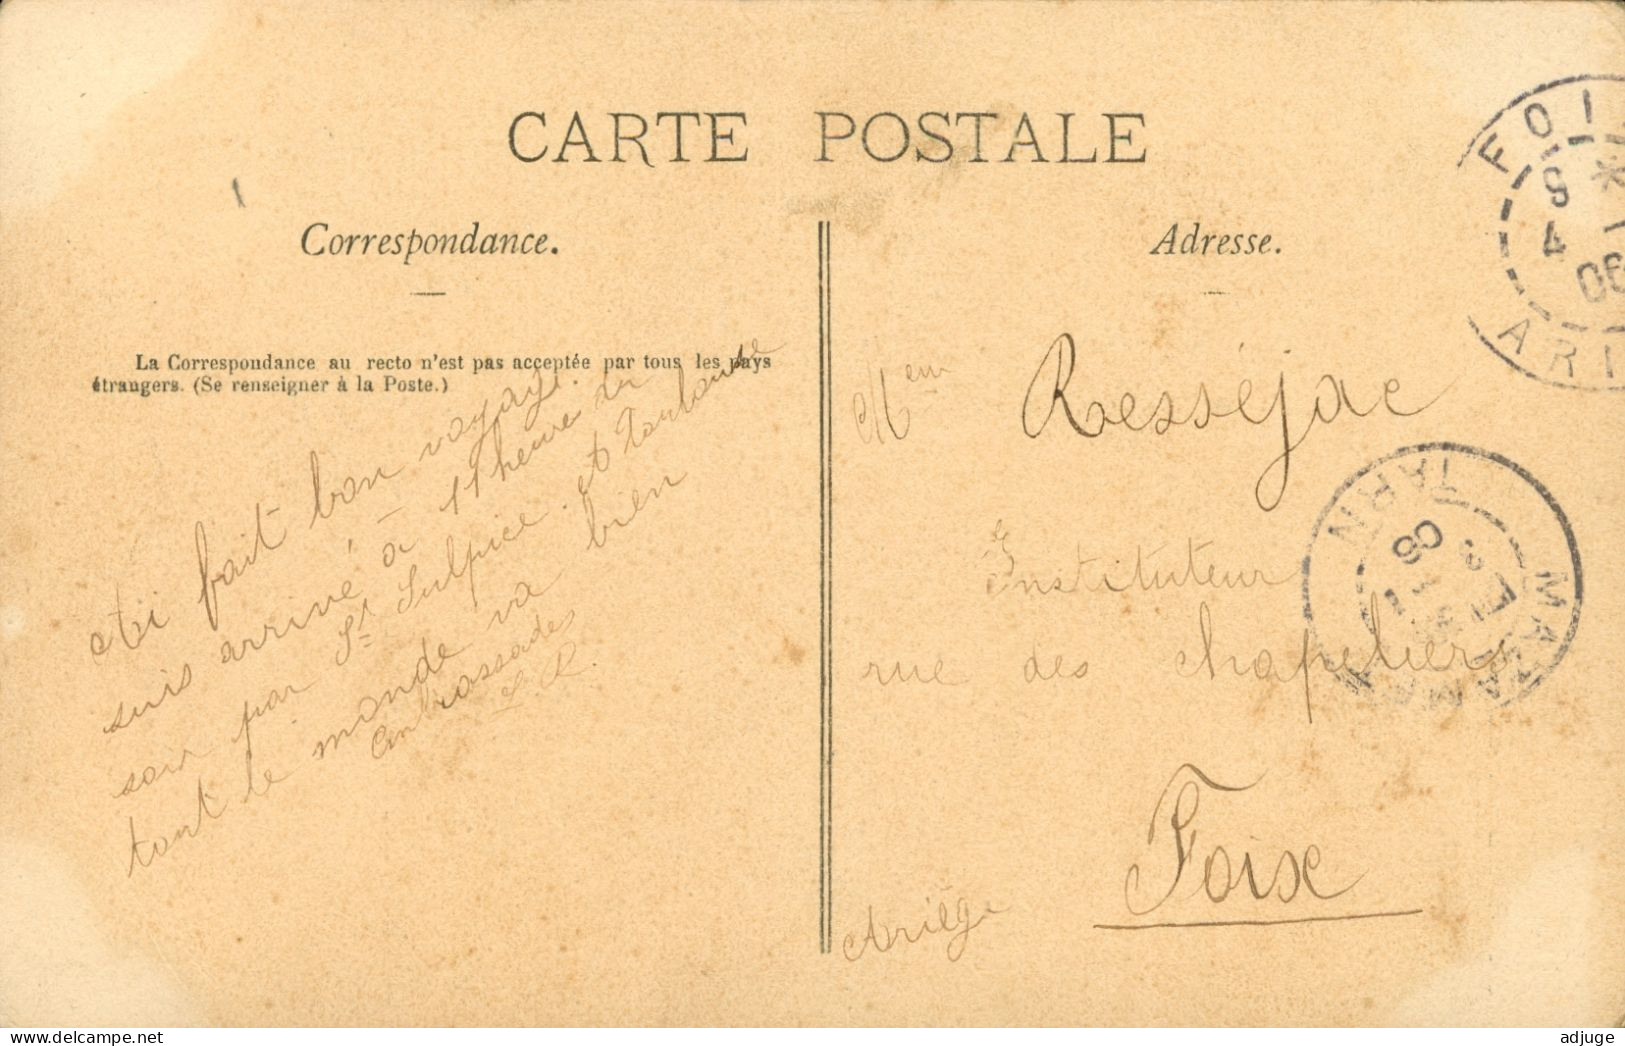 CARTE POSTALE
Correspondance.
Adresse.
La Correspondance au recto n'est pas acceptée par tous les pays
étrangers. (Se renseigner à la Poste.)
Ai fait bon voyage.
suis arrivé à 11 heure du
soir par St Sulpice et Toulouse
tout le monde va bien
Embrassades
L. R.
Mem Resséjac
Instituteur
rue des chapeliers
Foix
Ariège
FOI
S *
4 -
06
ARI
MAZAMET
TARN
06
www.delcampe.net
adjuge